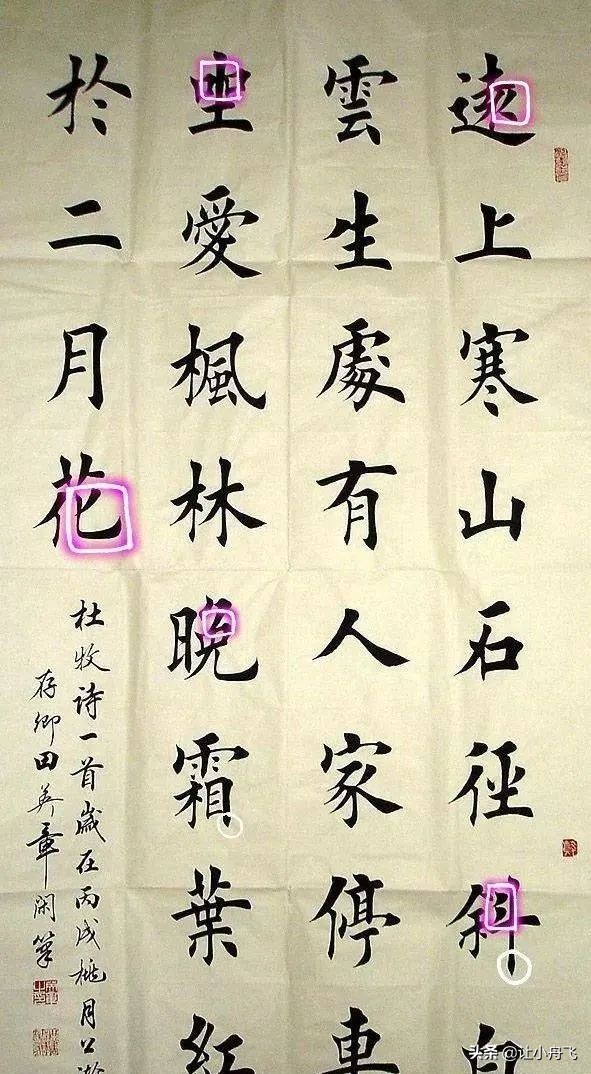 遠上寒山石徑斜白
雲生處有人家停車
坐愛楓林晚霜葉紅
於二月花
杜牧诗一首歲在丙戌桃月
存卿田英章闲筆
头条 @让小丹飞